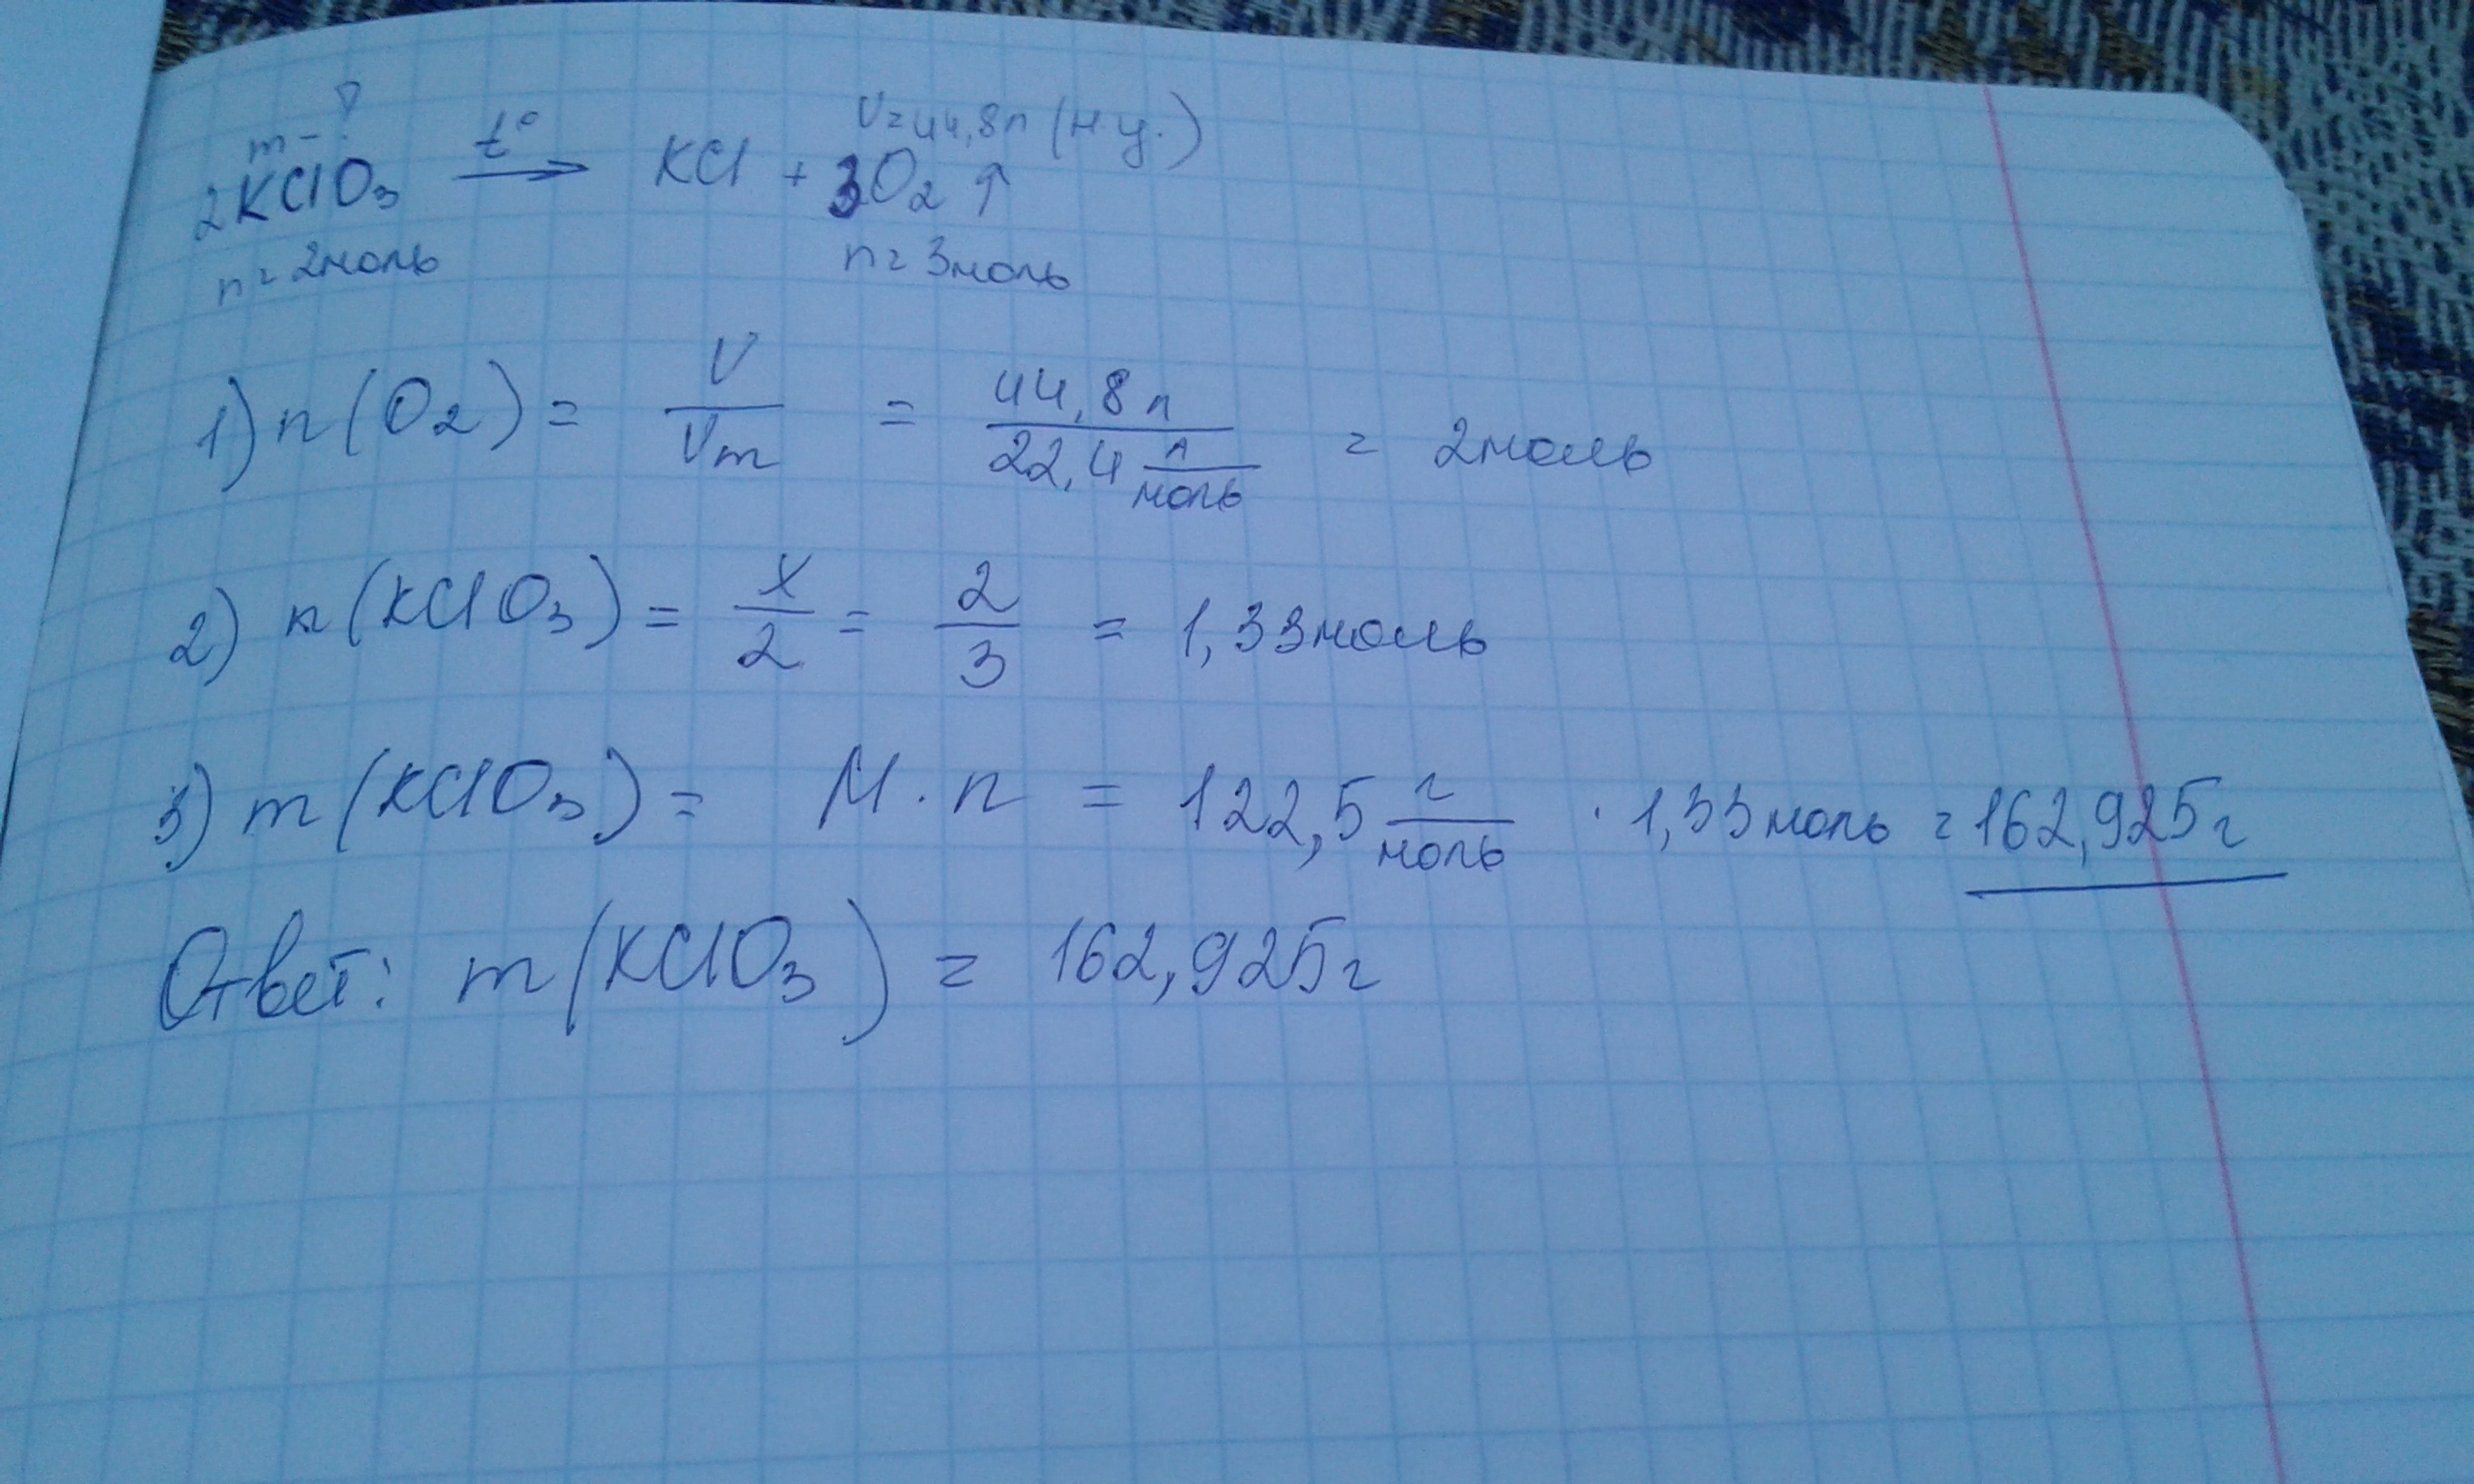 m-? V=44,8л (н.у.)
2KClO3 t° → KCl + 3O2 ↑
n=2моль n=3моль
1) n(O2) = V/Vm = 44,8л / 22,4 л/моль = 2моль
2) n(KClO3) = x/2 = 2/3 = 1,33моль
3) m(KClO3) = M·n = 122,5 г/моль · 1,33моль = 162,925г
Ответ: m(KClO3) = 162,925г